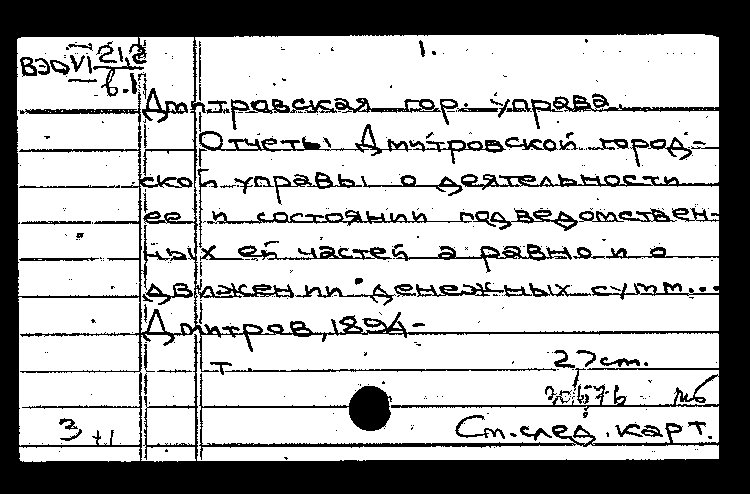 1.
ВЭО VI 21,2
в.1
Дмитровская гор. управа.
Отчеты Дмитровской город-
ской управы о деятельности
ее и состоянии подведомствен-
ных ей частей а равно и о
движении денежных сумм...
Дмитров, 1894-
т. 27 ст.
Ст. след. карт.